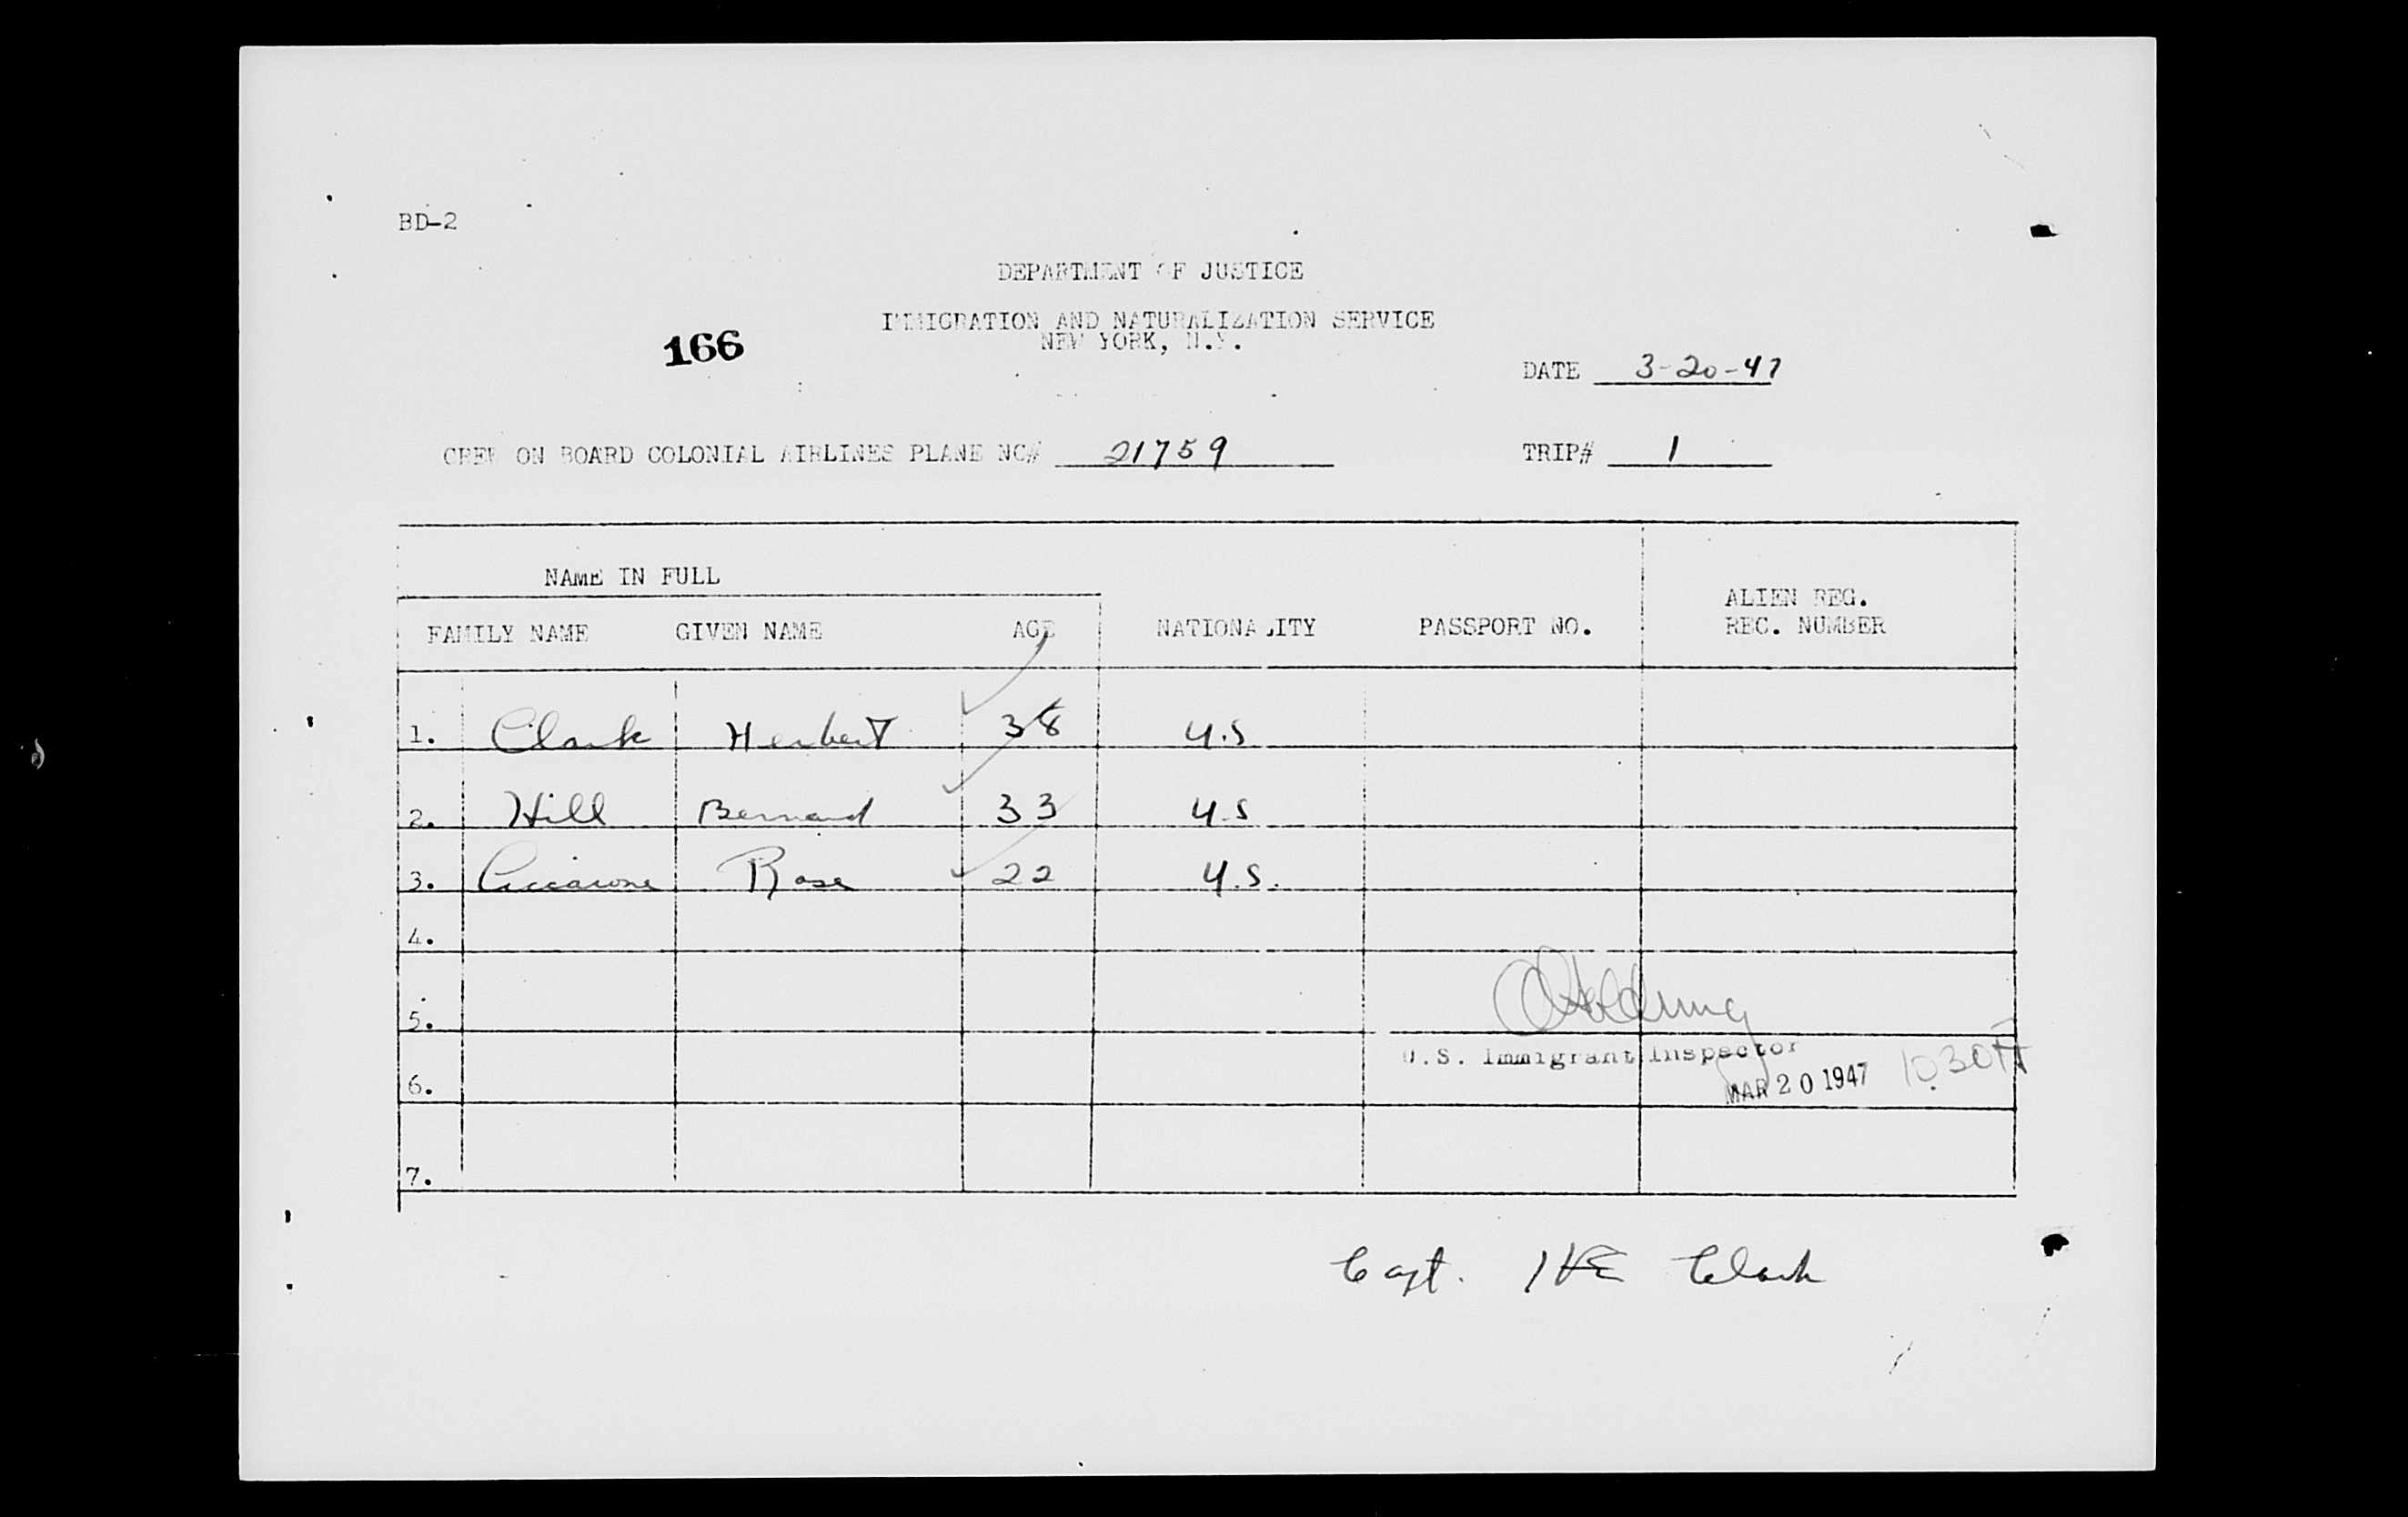 BD-2
DEPARTMENT OF JUSTICE
IMMIGRATION AND NATURALIZATION SERVICE
NEW YORK, N.Y.
166
DATE 3-20-47
CREW ON BOARD COLONIAL AIRLINES PLANE NC# 21759 TRIP# 1
NAME IN FULL
FAMILY NAME GIVEN NAME AGE NATIONALITY PASSPORT NO. ALIEN REG. REC. NUMBER
1. Clark Herbert 38 U.S
2. Hill Bernard 33 U.S
3. Ciccarone Rose 22 U.S.
4.
5.
U.S. Immigrant Inspector
6. MAR 20 1947 10:30 A
7.
Capt. Clark